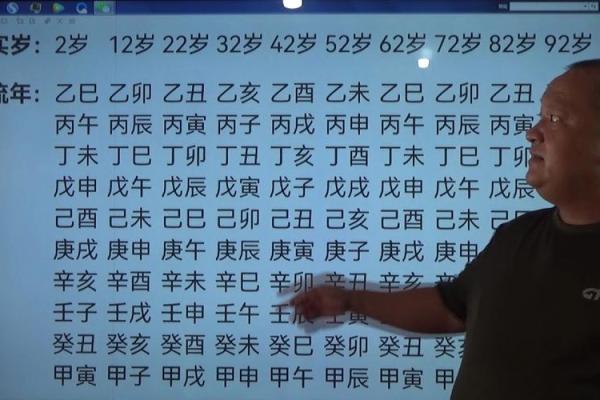 实岁：2岁 12岁 22岁 32岁 42岁 52岁 62岁 72岁 82岁 92岁
流年：乙巳 乙卯 乙丑 乙亥 乙酉 乙未 乙巳 乙卯 乙丑
丙午 丙辰 丙寅 丙子 丙戌 丙申 丙午 丙辰 丙寅
丁未 丁巳 丁卯 丁丑 丁亥 丁酉 丁未 丁巳 丁卯
戊申 戊午 戊辰 戊寅 戊子 戊戌 戊申 戊午 戊辰
己酉 己未 己巳 己卯 己丑 己亥 己酉 己未
庚戌 庚申 庚午 庚辰 庚寅 庚子 庚戌 庚申
辛亥 辛酉 辛未 辛巳 辛卯 辛丑 辛亥
壬子 壬戌 壬申 壬午 壬辰 壬寅
癸丑 癸亥 癸酉 癸未 癸巳 癸卯 癸丑 癸亥
甲寅 甲子 甲戌 甲申 甲午 甲辰 甲寅 甲